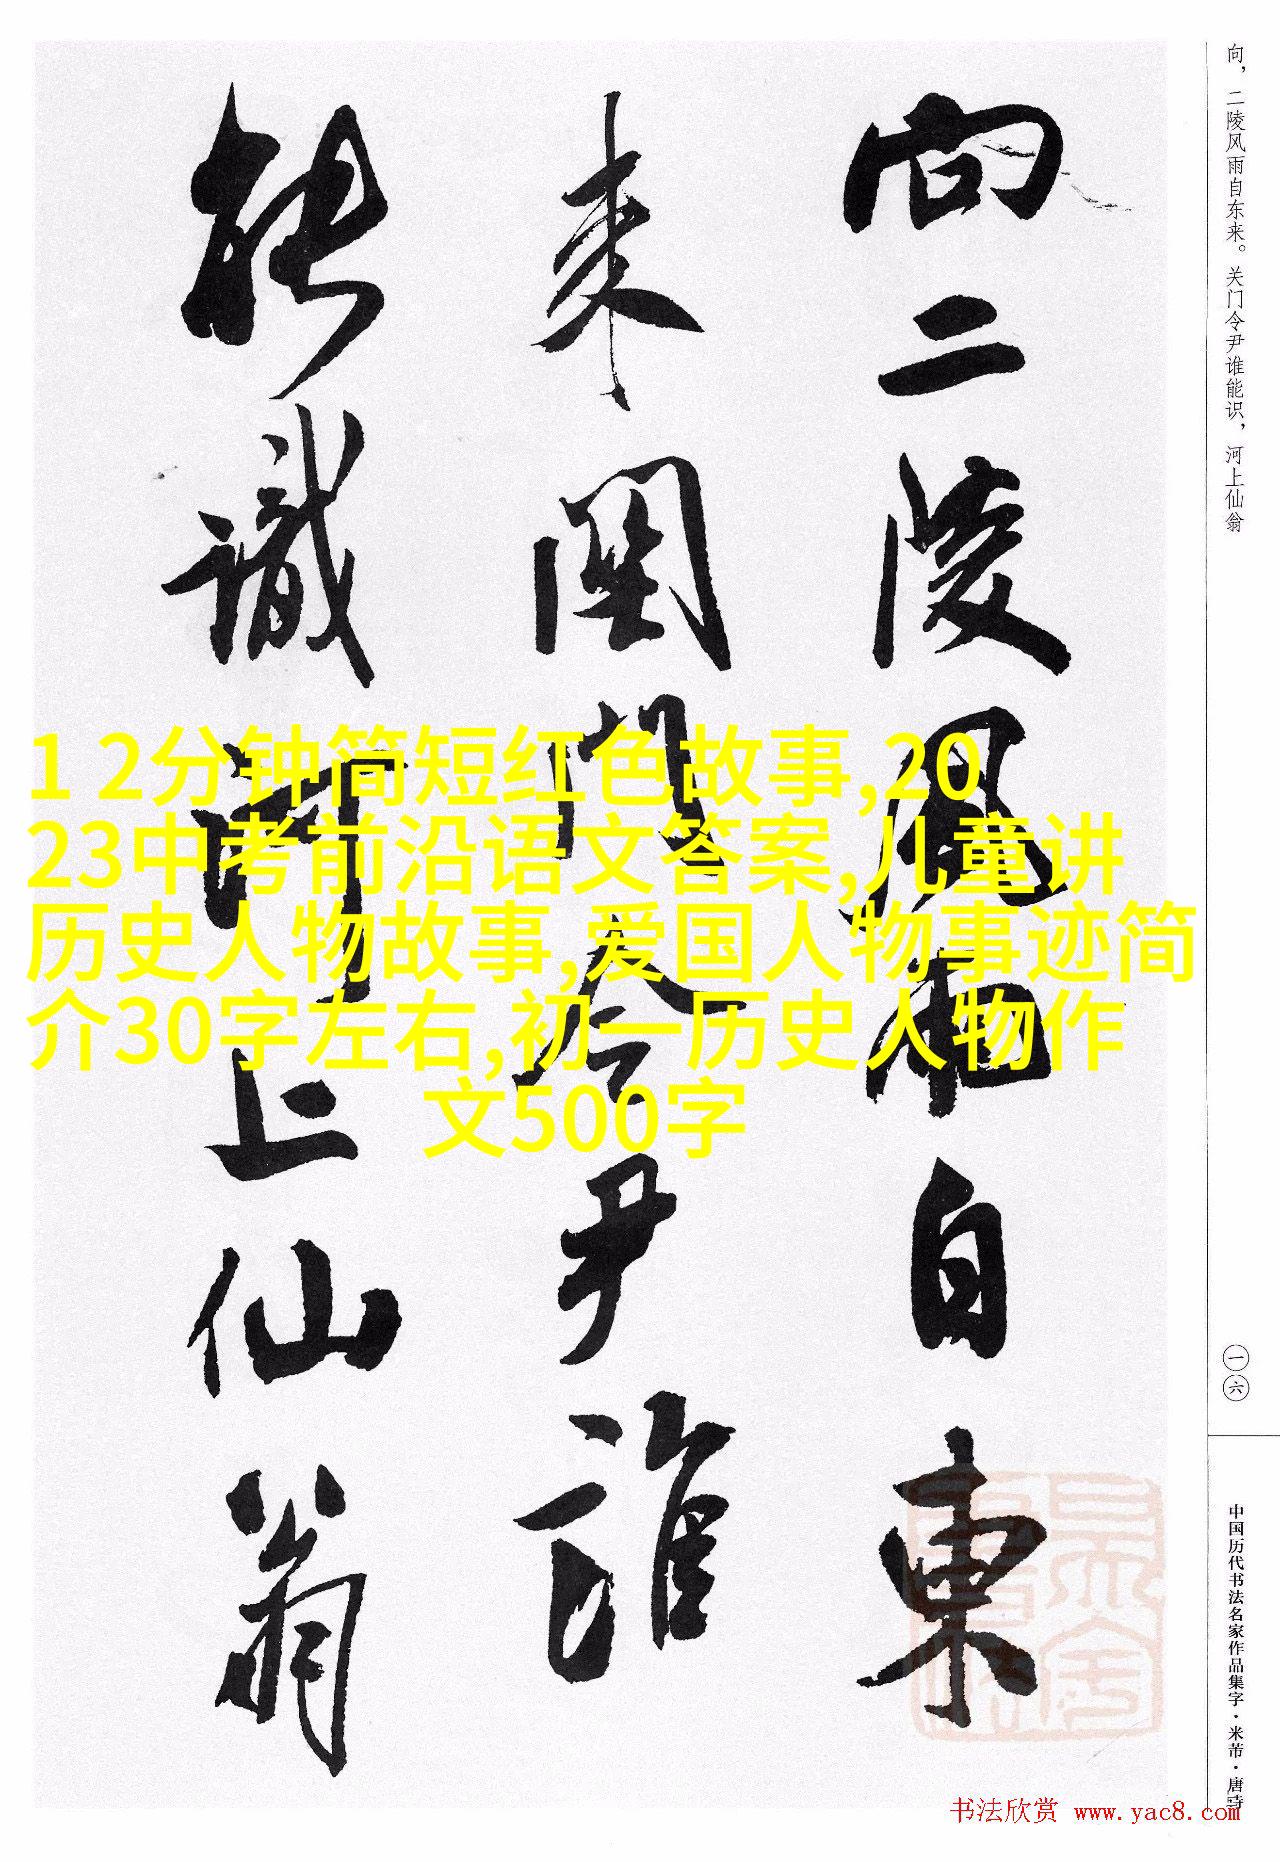 向，二陵风雨自东来。关门令尹谁能识，河上仙翁
向二陵風雨自東
来關門令尹誰
能識河上仙翁
1 2分钟简短红色故事,20
23中考前沿语文答案,儿童讲
历史人物故事,爱国人物事迹简
介30字左右,初一历史人物作
文500字
一六
中国历代书法名家作品集字·米芾·唐诗
书法欣赏 www.yac8.com